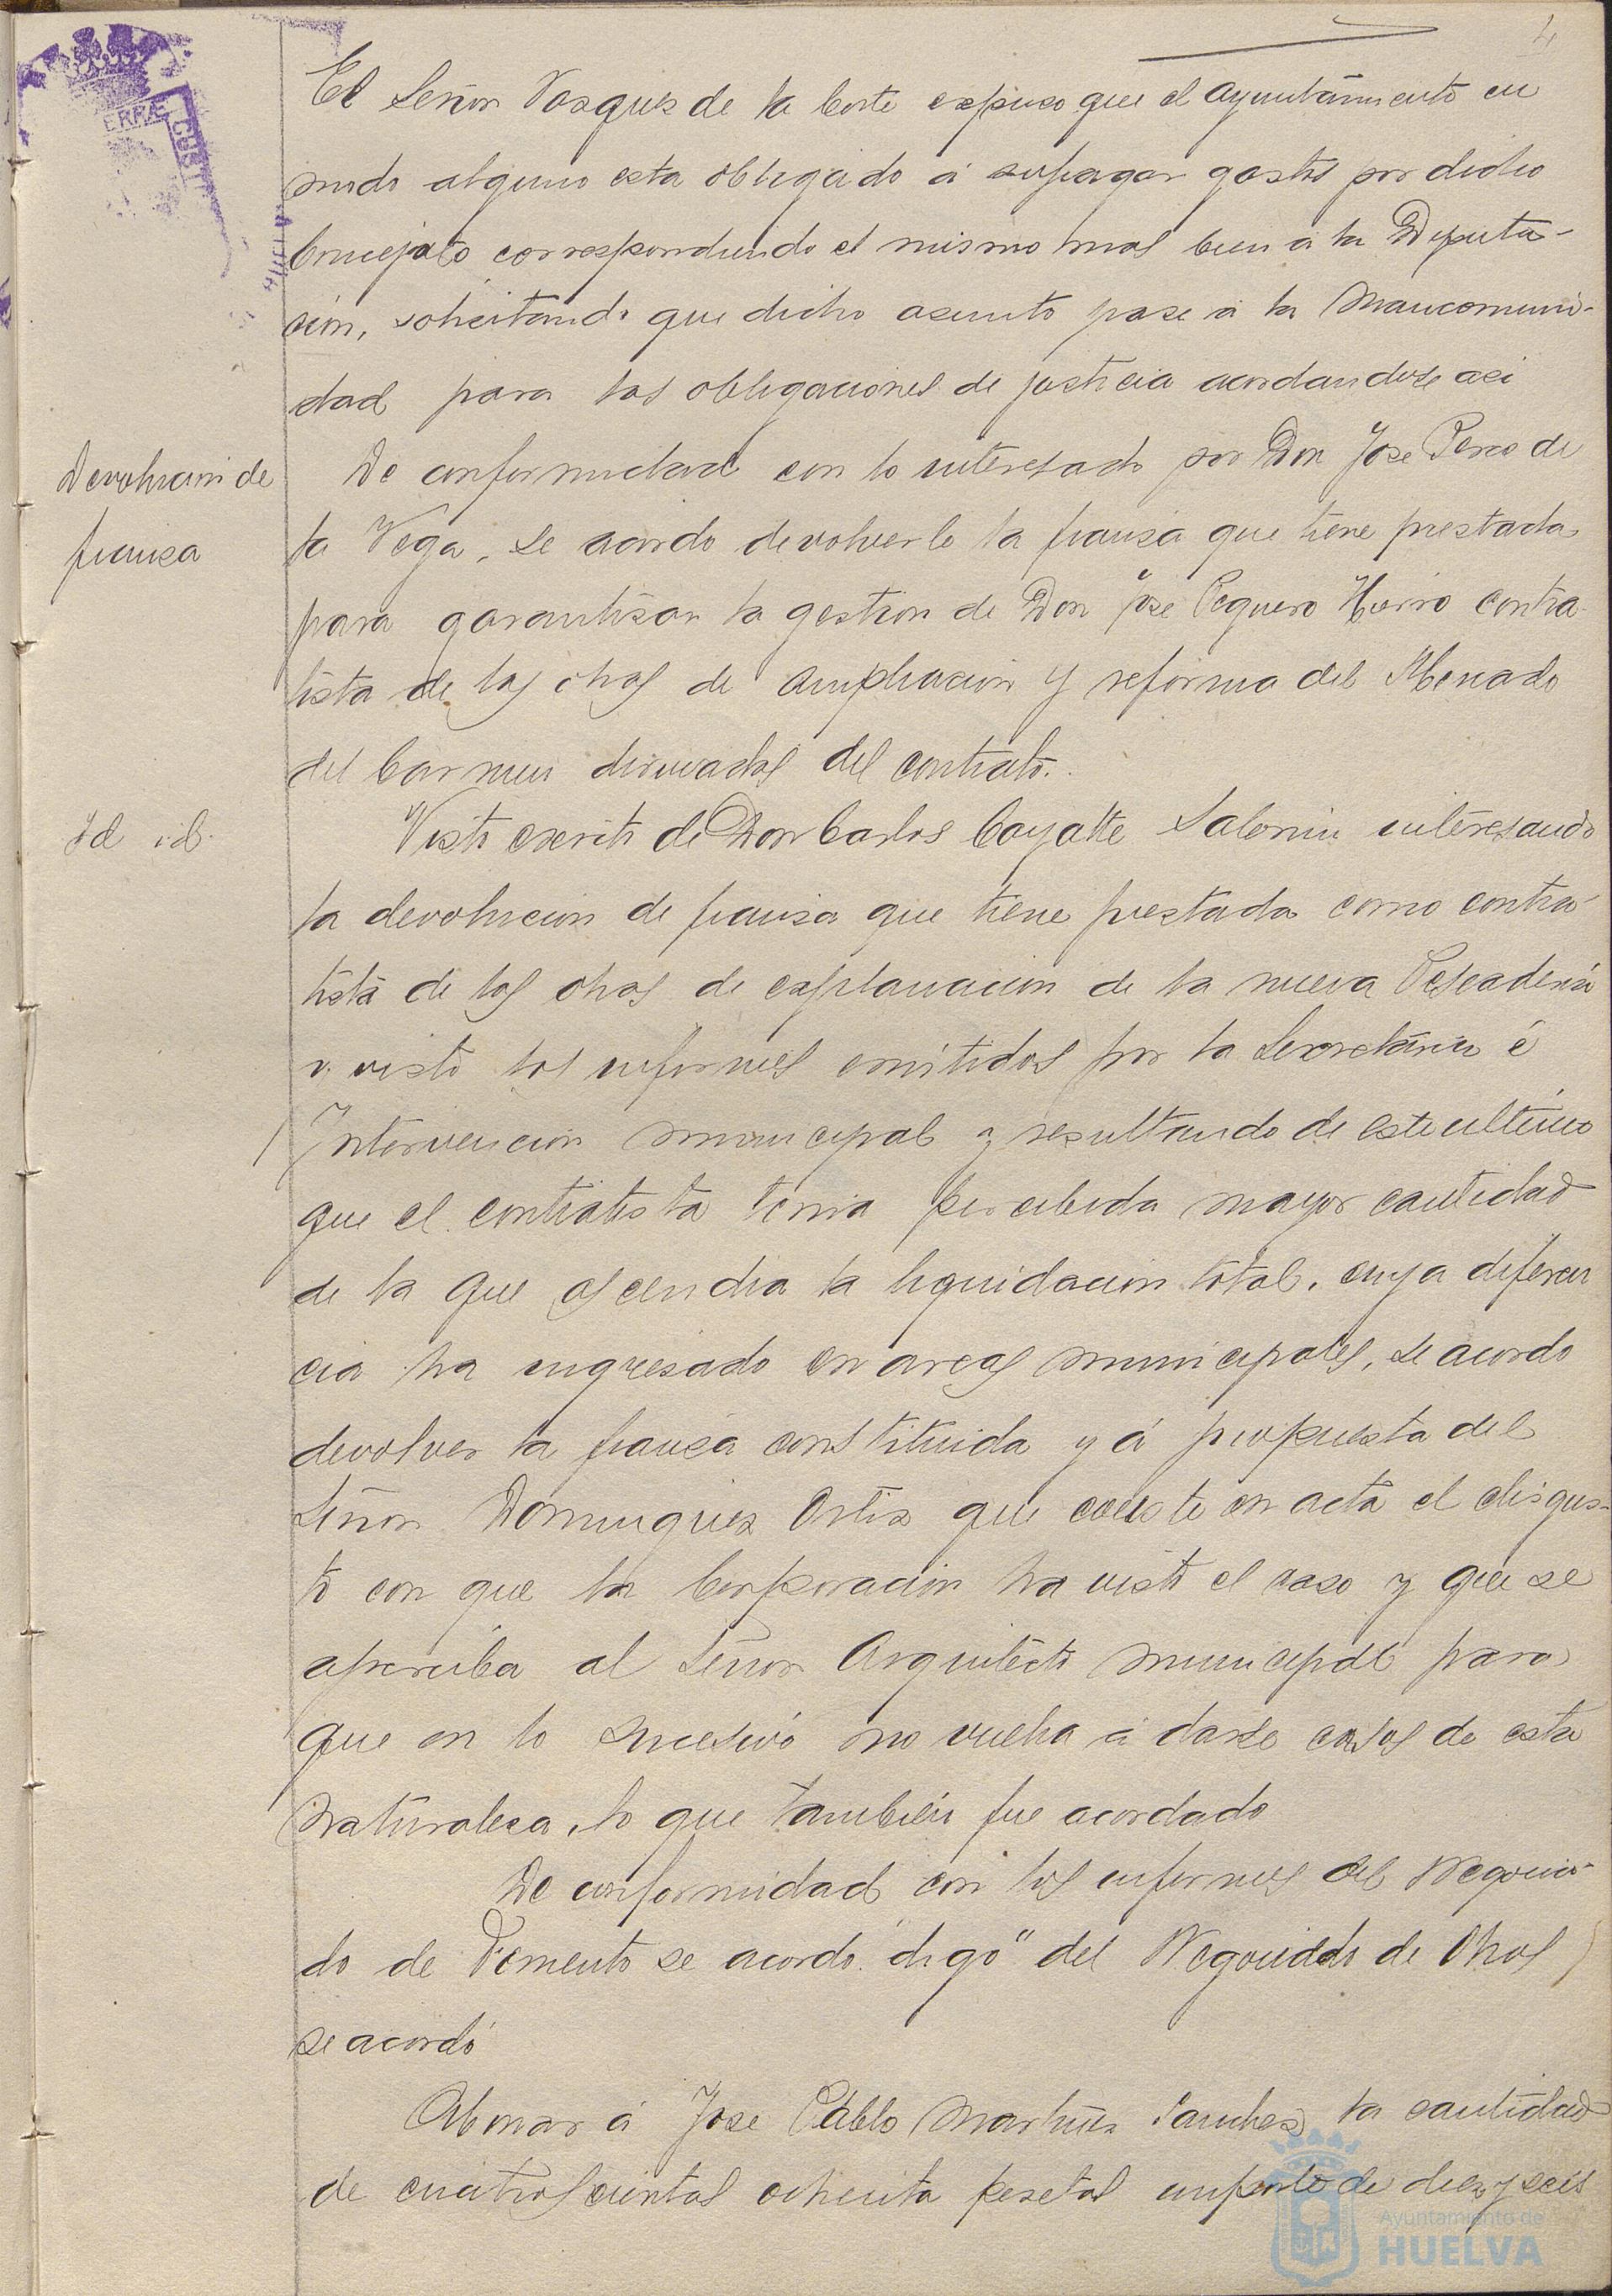 4
El Señor Vazquez de la Corte expuso que el Ayuntamiento en
modo alguno esta obligado á sufragar gastos por dicho
Concejato correspondiendo el mismo mas bien á la Diputa-
cion, solicitando que dicho asunto pase á la Mancomuni-
dad para las obligaciones de justicia acordandose asi
Devolucion de
fianza
De conformidad con lo interesado por Don Jose Perez de
la Vega, se acordo devolverle la fianza que tiene prestada
para garantizar la gestion de Don Jose Peguero Hierro contra
tista de las obras de ampliacion y reforma del Mercado
del Carmen dimanadas del contrato.
Id id.
Visto escrito de Don Carlos Cayatte Salomin interesando
la devolucion de fianza que tiene prestada como contra-
tista de las obras de explanacion de la nueva Pescaderia
y visto los informes emitidos por la Secretaria é
Intervencion municipal y resultando de este ultimo
que el contratista tenia percibida mayor cantidad
de la que ascendia la liquidacion total, cuya diferen
cia ha ingresado en arcas municipales, se acordo
devolver la fianza constituida y á propuesta del
Señor Dominguez Ortiz que conste en acta el disgus-
to con que la Corporacion ha visto el caso y que se
aperciba al Señor Arquitecto municipal para
que en lo sucesivo no vuelva á darse casos de esta
naturaleza, lo que tambien fue acordado
De conformidad con los informes del Negocia-
do de Fomento se acordó "digo" del Negociado de Obras
se acordó
Abonar á Jose Pablo Martinez Sanchez la cantidad
de cuatroscientas ochenta pesetas importe de diez y seis
Ayuntamiento de
HUELVA